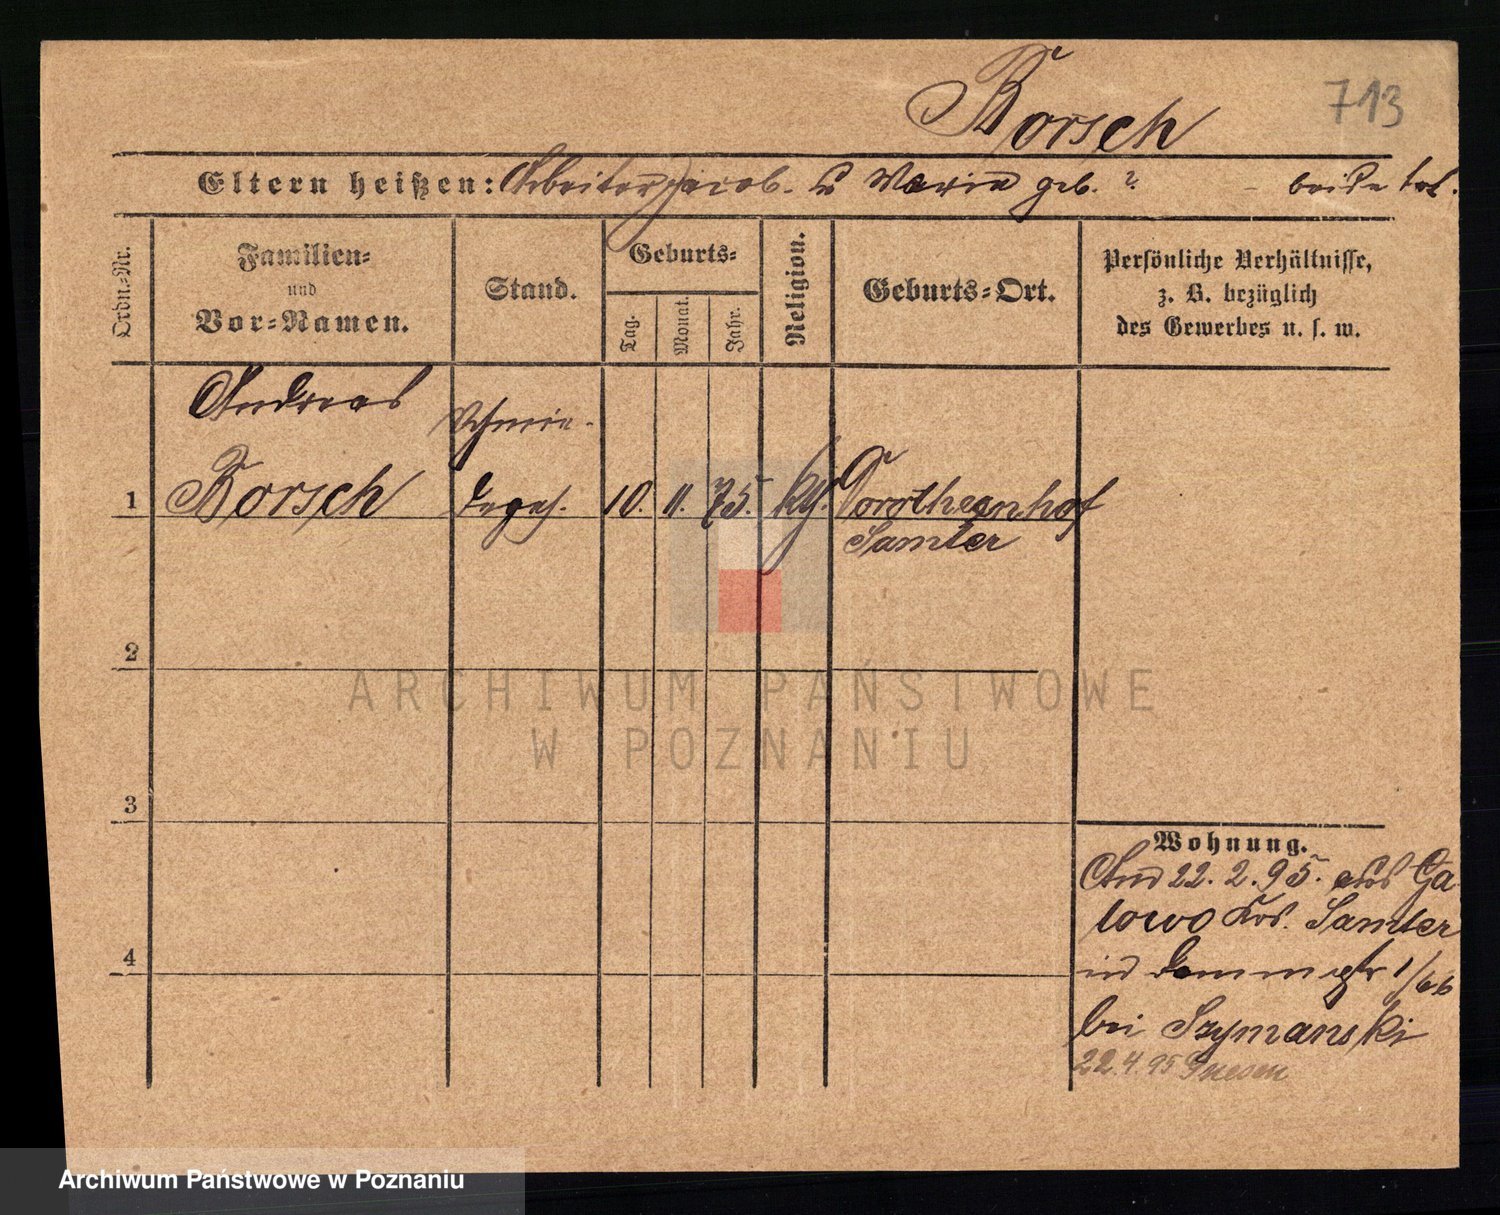 Borsch
713
Eltern heißen: Arbeiter Jacob u Maria geb. ? - beide tot.
Ordn.-Nr.
Familien-
und
Vor-Namen.
Stand.
Geburts-
Tag.
Monat.
Jahr.
Religion.
Geburts-Ort.
Persönliche Verhältnisse,
z. B. bezüglich
des Gewerbes u. s. w.
Andreas
Schmie-
1 Borsch deges. 10. 11. 75. kth. Dorotheenhof
Samter
2
3
4
Wohnung.
22.2.95. aus Ga
lowo Krs. Samter
1/66
bei Szymanski
22.4.95 Gnesen
ARCHIWUM PAŃSTWOWE
W POZNANIU
Archiwum Państwowe w Poznaniu